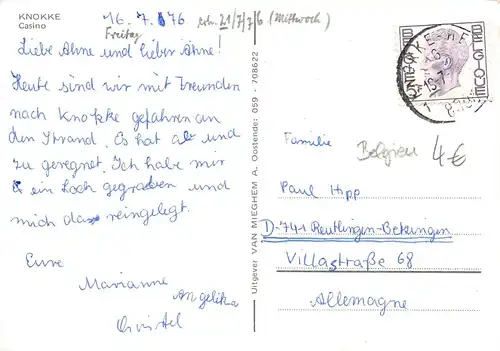 KNOKKE
Casino
16. 7. 76 erh. 21/7/76 (Mittwoch)
Freitag
Liebe Ahne und lieber Ähne!
Heute sind wir mit Freunden
nach Knokke gefahren an
den Strand. Es hat ab und
zu geregnet. Ich habe mir
ein Loch gegraben und
mich da reingelegt.
Eure
Marianne
Angelika
Christel
Uitgever VAN MIEGHEM A. Oostende: 059 - 708622
BELGIE-BELGIQUE
Familie
Belgien 4€
Paul Hipp
D-741 Reutlingen-Betzingen
Villastraße 68
Allemagne